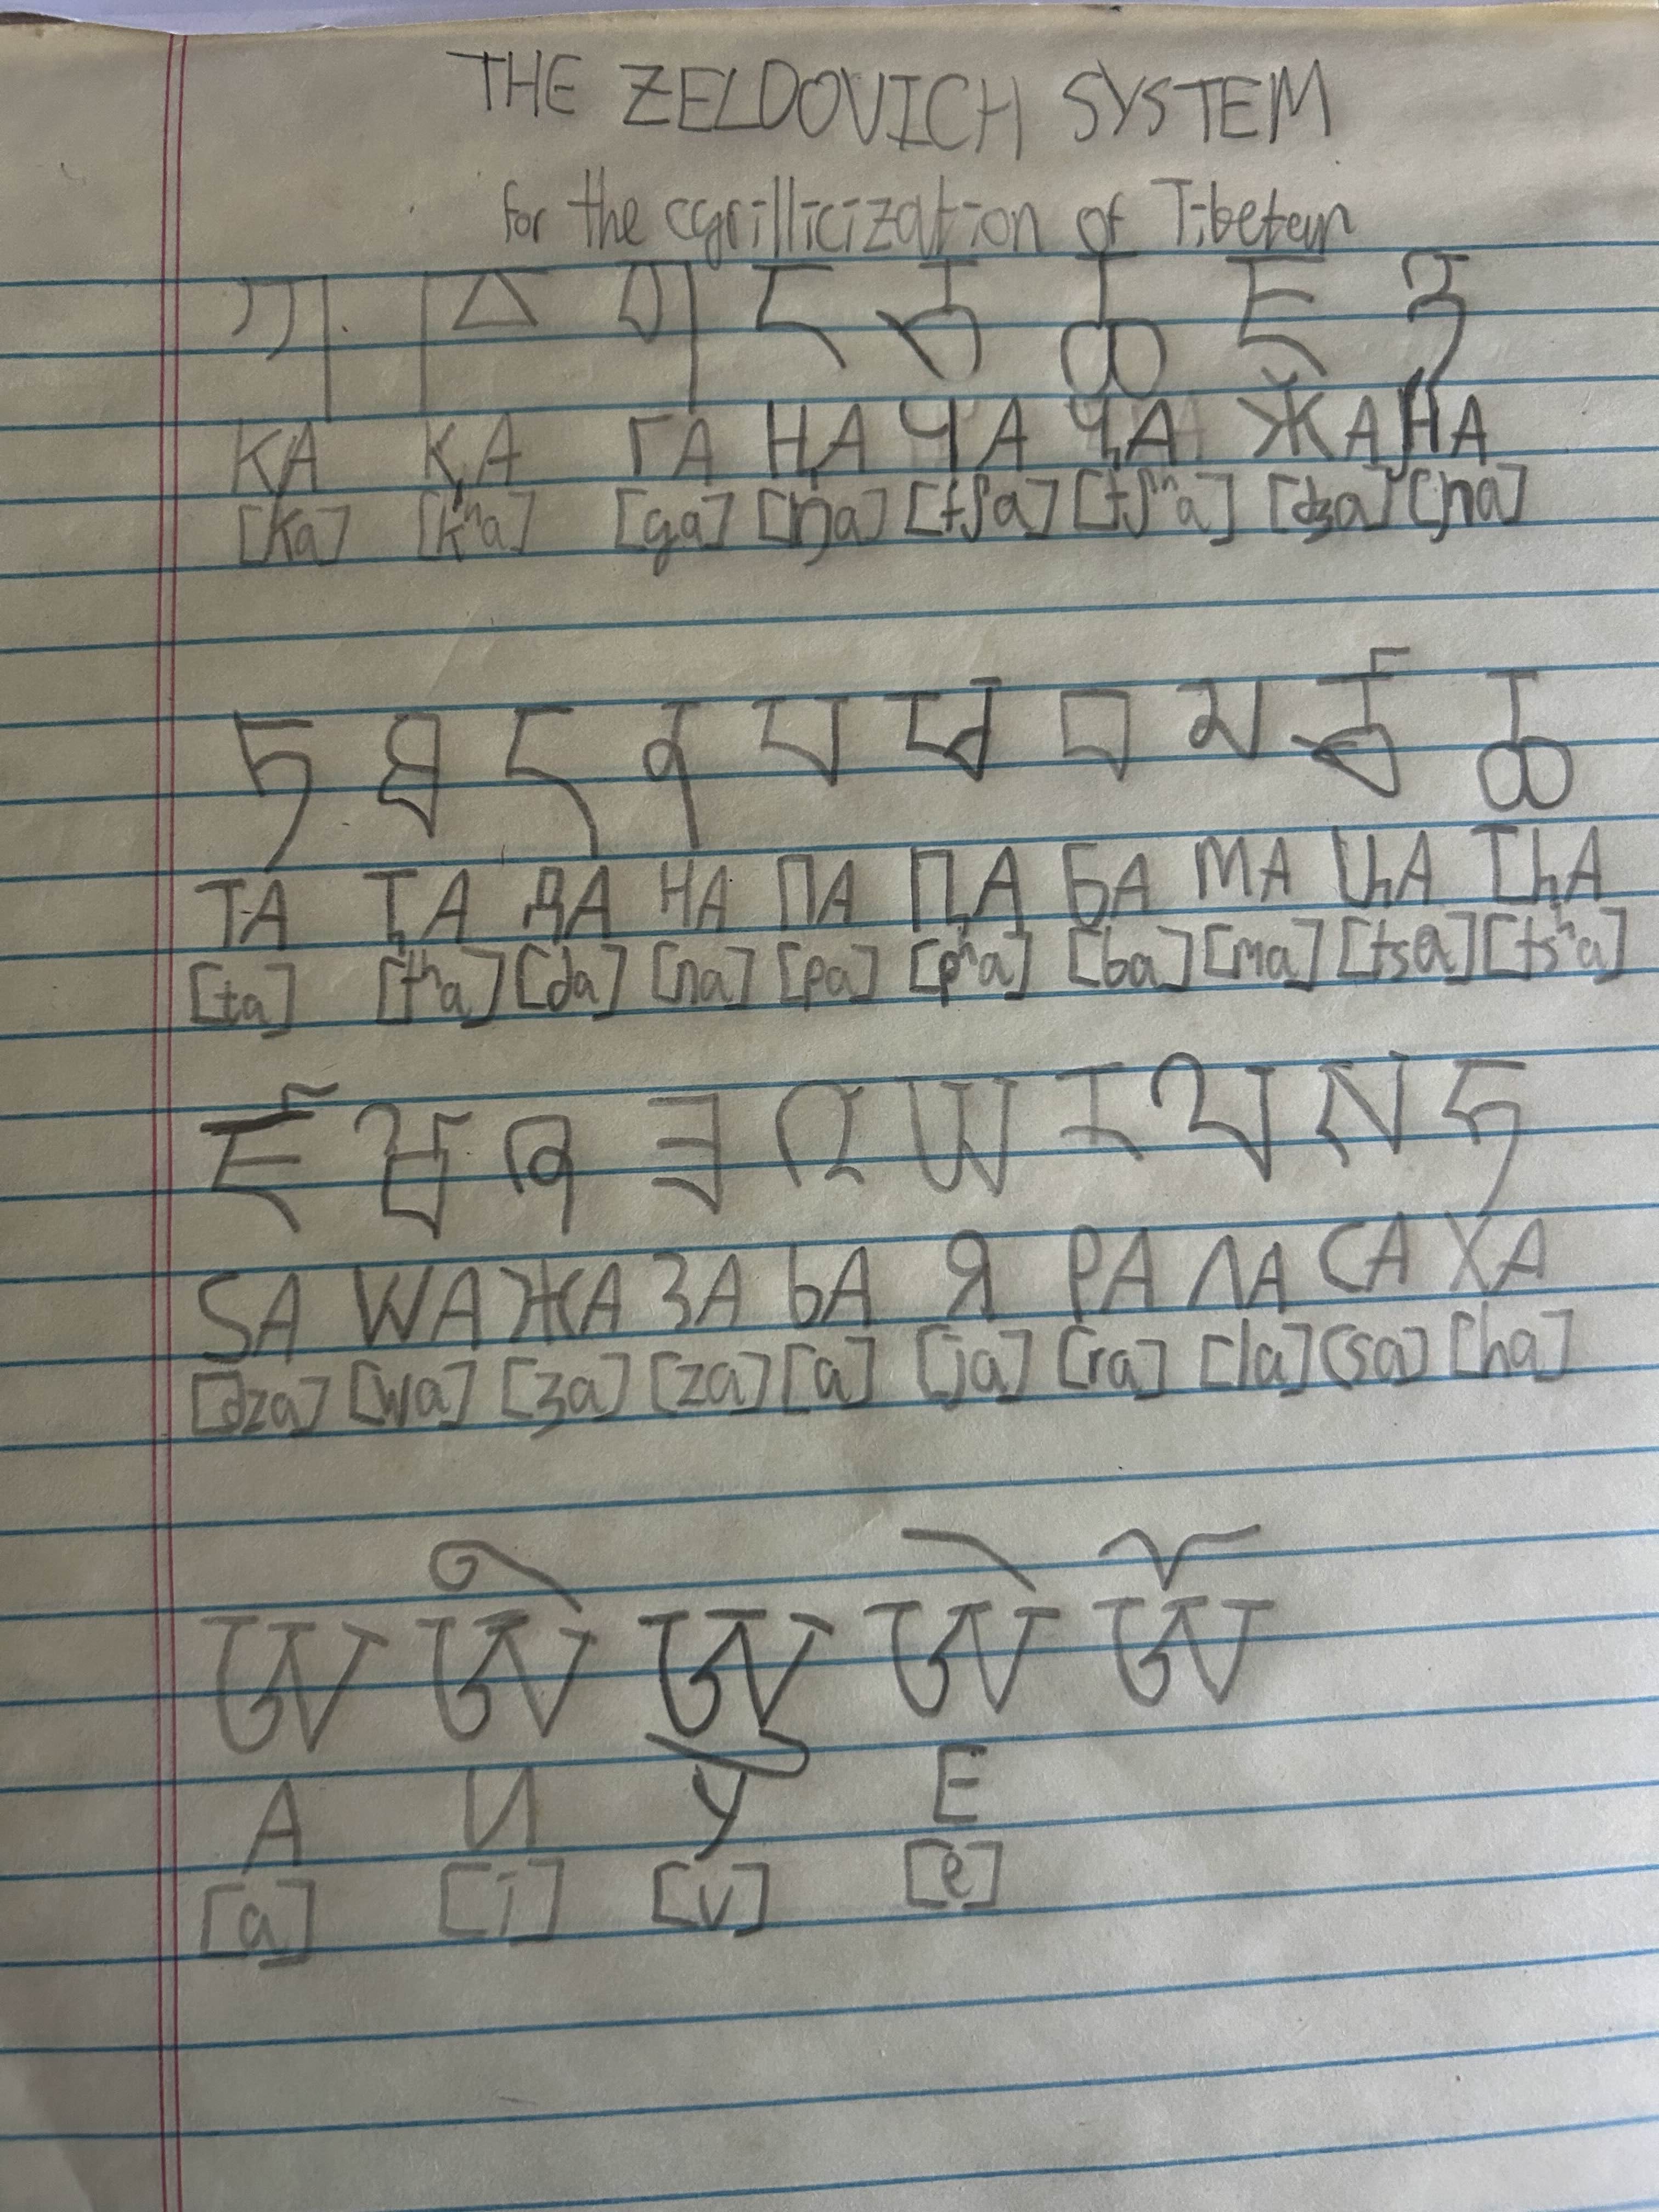 THE ZELDOVICH SYSTEM
for the cyrillicization of Tibetan
ཀ ཁ ག ང ཅ ཆ ཇ ཉ
КА ҚА ГА ҢА ЧА ҶА ӁА ԊА
[ka] [kʰa] [ga] [ŋa] [tʃa] [tʃʰa] [dʒa] [ɲa]
ཏ ཐ ད ན པ ཕ བ མ ཙ ཚ
ТА ҬА ДА НА ПА ԤА БА МА ЦА ҴА
[ta] [tʰa] [da] [na] [pa] [pʰa] [ba] [ma] [tsa] [tsʰa]
ཛ ཝ ཞ ཟ འ ཡ ར ལ ས ཧ
ЅА ԜА ЖА ЗА ЬА Я РА ЛА СА ХА
[dza] [wa] [ʒa] [za] [a] [ja] [ra] [la] [sa] [ha]
ཨ ཨི ཨུ ཨེ ཨོ
А И У Е
[a] [i] [u] [e]